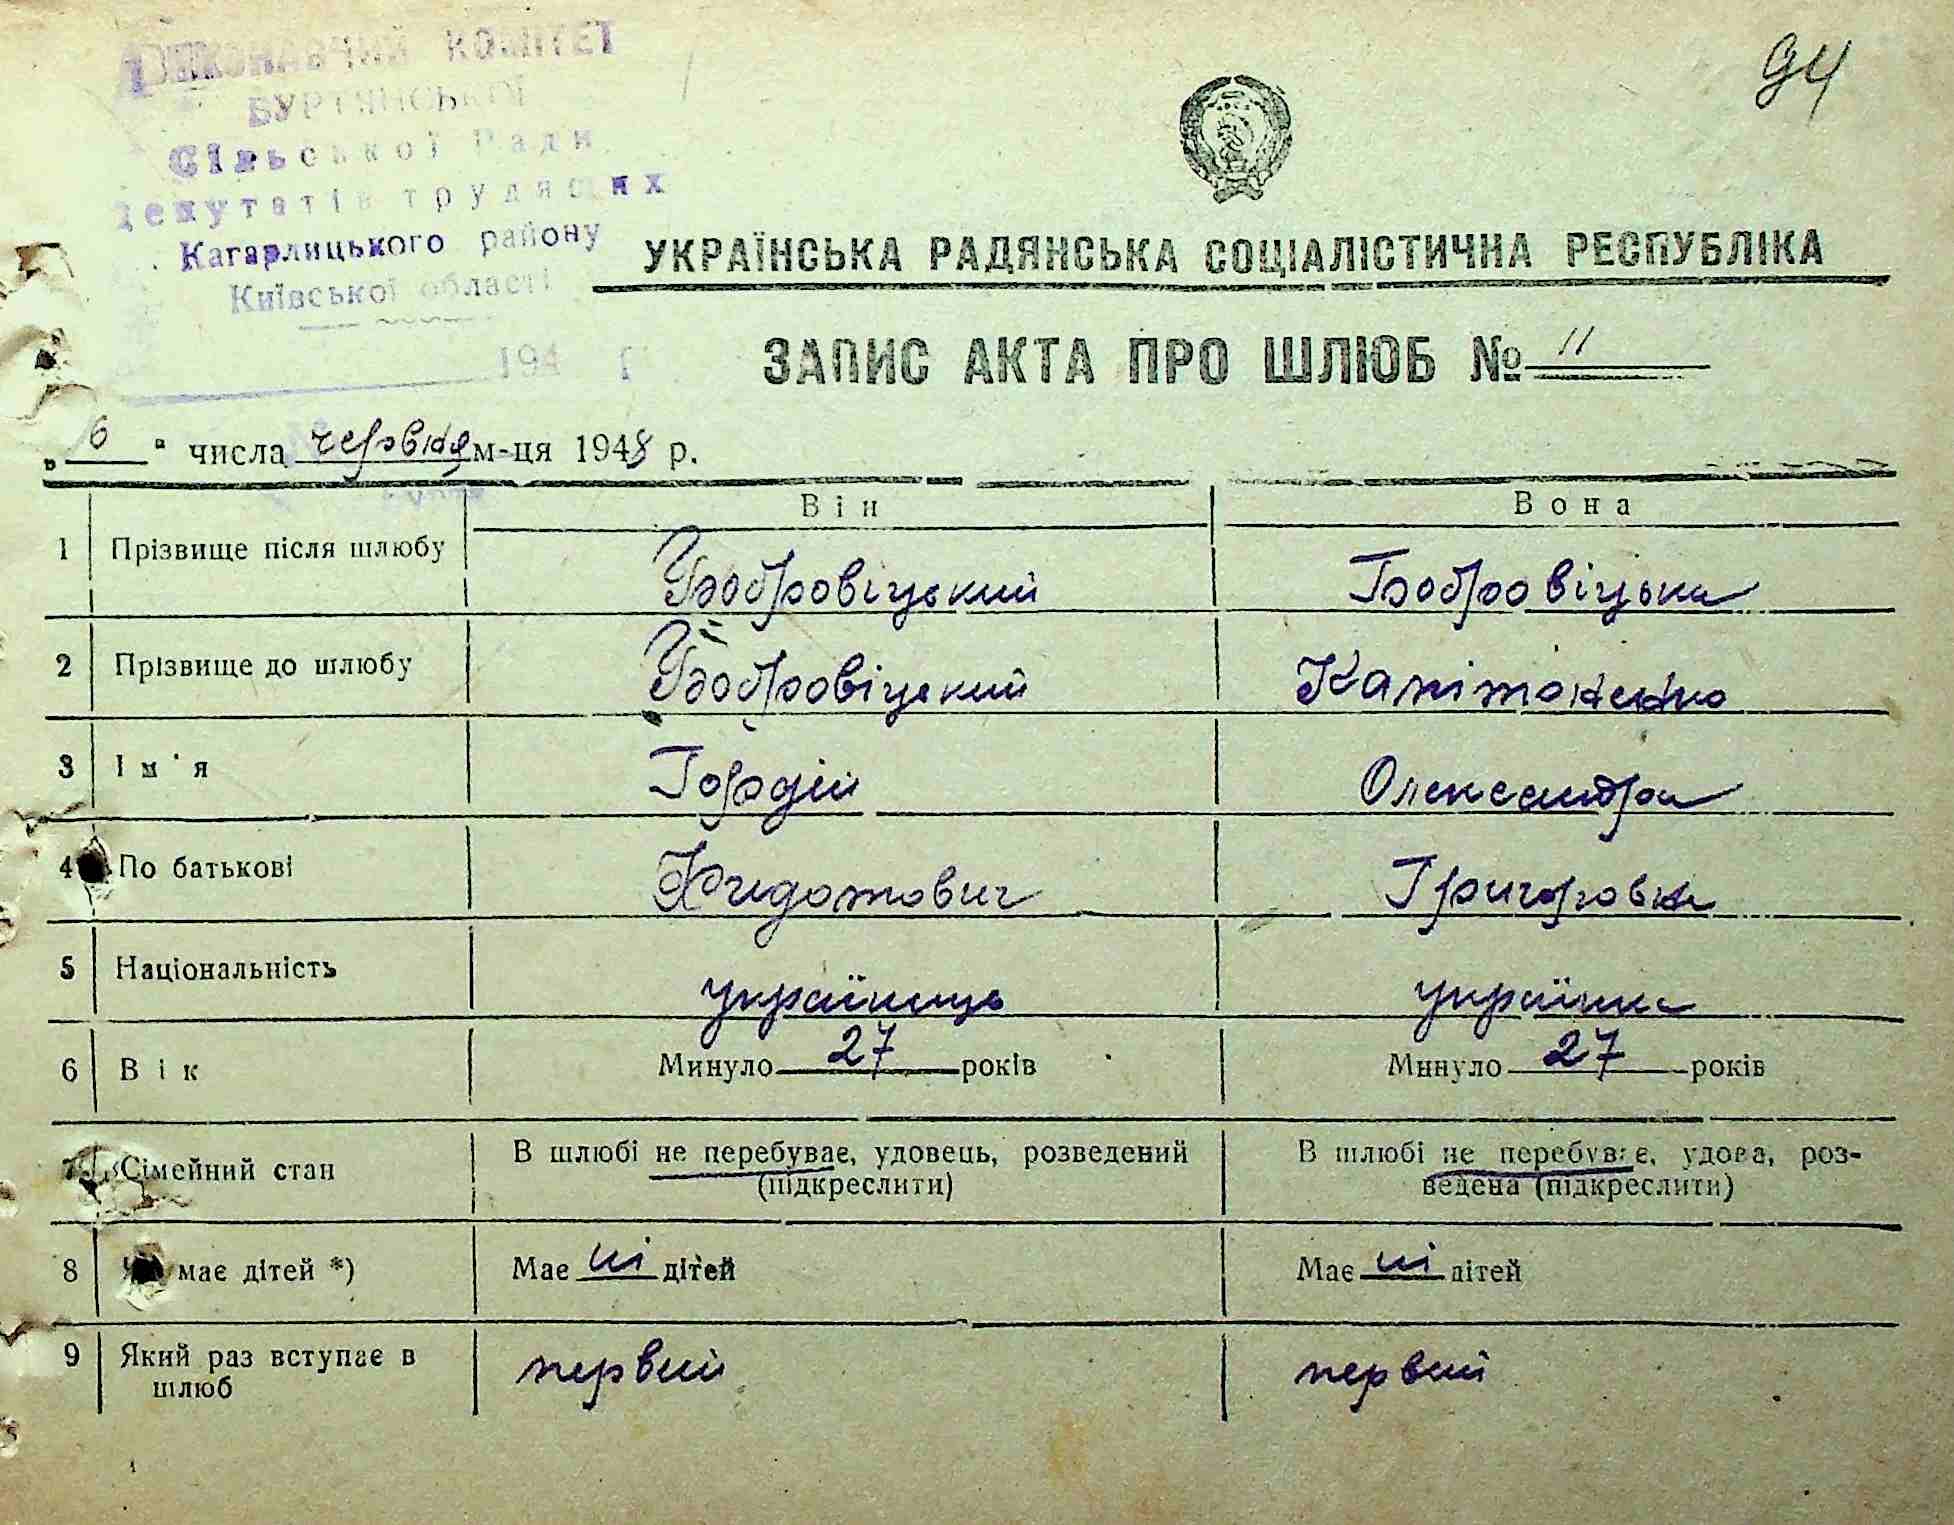 94
ВИКОНАВЧИЙ КОМІТЕТ
БУРТЯНСЬКОЇ
Сільської Ради
депутатів трудящих
Кагарлицького району
Київської області
194 р
УКРАЇНСЬКА РАДЯНСЬКА СОЦІАЛІСТИЧНА РЕСПУБЛІКА
ЗАПИС АКТА ПРО ШЛЮБ № 11
„ 6 “ числа червня м-ця 1948 р.
Він Вона
1 Прізвище після шлюбу Бобровіцький Бобровіцька
2 Прізвище до шлюбу Бобровіцький Капітоненко
3 Ім'я Гордій Олександра
4 По батькові Федотович Григоровна
5 Національність українець українка
6 Вік Минуло 27 років Минуло 27 років
7 Сімейний стан В шлюбі не перебуває, удовець, розведений В шлюбі не перебуває, удова, роз-
(підкреслити) ведена (підкреслити)
8 має дітей *) Має ні дітей Має ні дітей
9 Який раз вступає в первий первий
шлюб